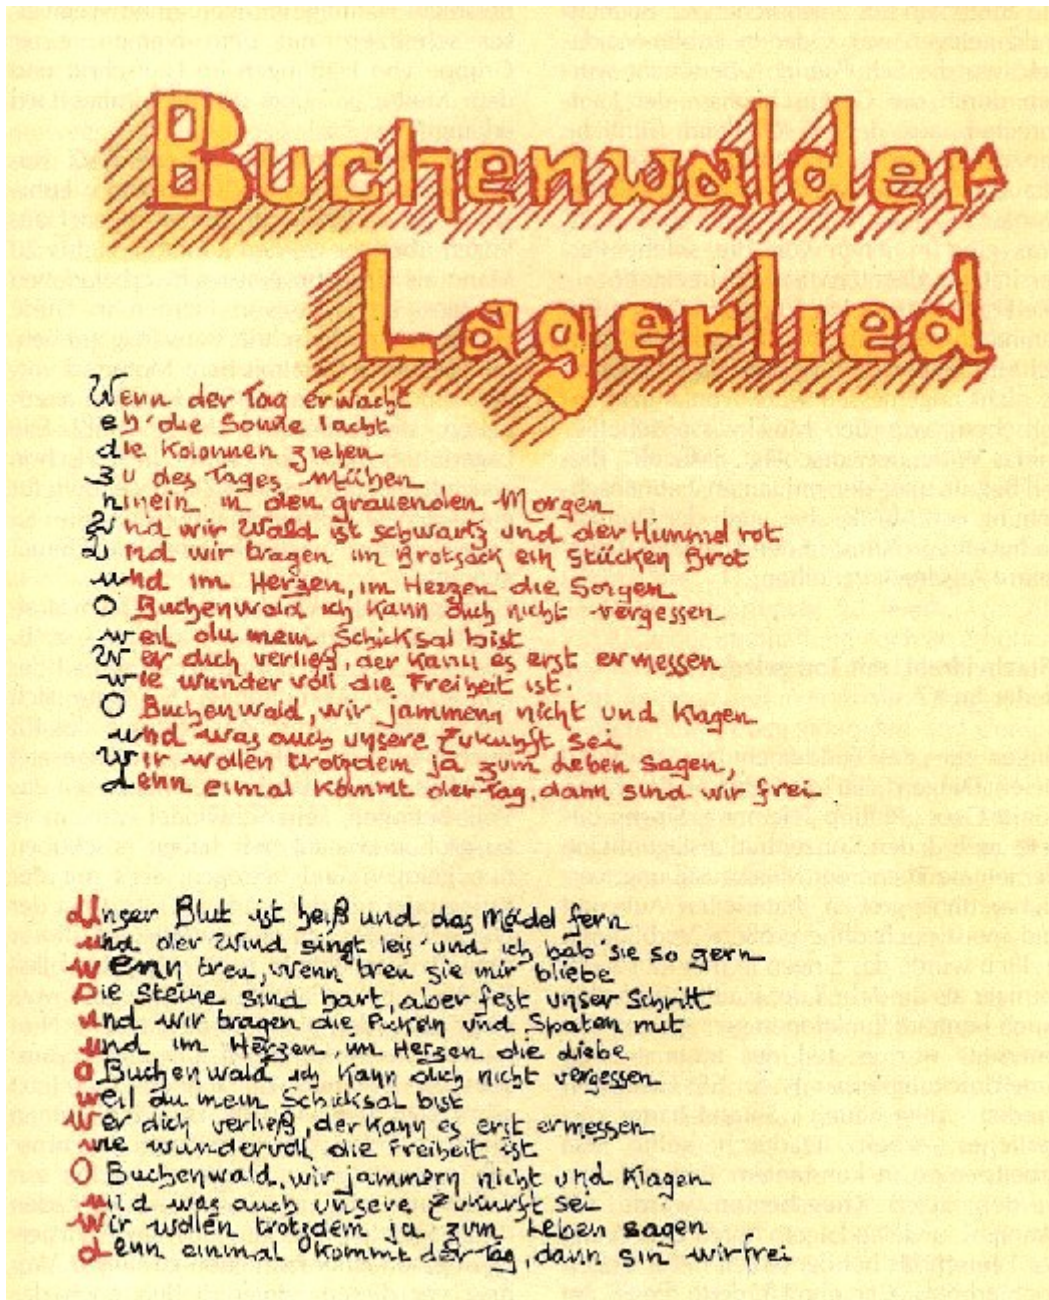 Buchenwalder
Lagerlied
Wenn der Tag erwacht
eh' die Sonne lacht
die Kolonnen ziehen
zu des Tages Mühen
hinein in den grauenden Morgen
Und wir Wald ist schwartz und der Himmel rot
Und wir tragen im Brotsack ein Stücken Brot
und im Herzen, im Herzen die Sorgen
O Buchenwald ich kann dich nicht vergessen
weil du mein Schicksal bist
Wer dich verließ, der kann es erst ermessen
wie wunder voll die Freiheit ist.
O Buchenwald, wir jammern nicht und klagen
und was auch unsere Zukunft sei
Wir wollen trotzdem ja zum Leben sagen,
denn eimal kommt der Tag, dann sind wir frei
Unser Blut ist heiß und das Mädel fern
und der Wind singt leis' und ich hab' sie so gern
wenn treu, wenn treu sie mir bliebe
Die Steine sind hart, aber fest unser Schritt
und wir tragen die Pickeln und Spaten mit
und im Herzen, im Herzen die Liebe
O Buchenwald ich kann dich nicht vergessen
weil du mein Schicksal bist
Wer dich verließ, der kann es erst ermessen
wie wundervoll die Freiheit ist
O Buchenwald, wir jammern nicht und klagen
und was auch unsere Zukunft sei
Wir wollen trotzdem ja zum Leben sagen
denn einmal kommt der Tag, dann sin wir frei